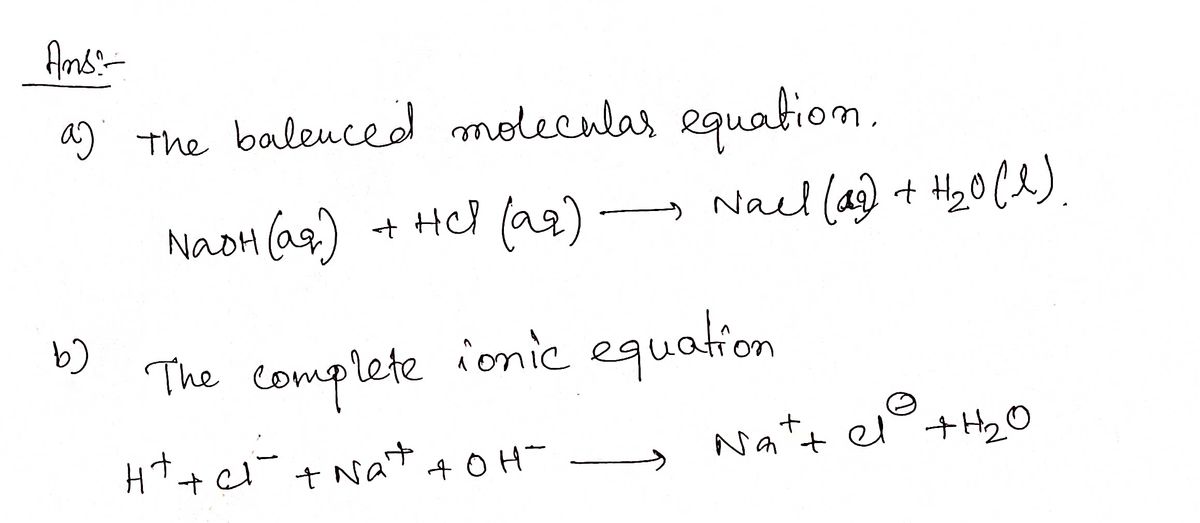 Ans:-
a) The balenced molecular equation.
NaOH(aq) + HCl (aq) ⟶ NaCl (aq) + H₂O(l).
b) The complete ionic equation
H⁺ + Cl⁻ + Na⁺ + OH⁻ ⟶ Na⁺ + Cl⊖ + H₂O